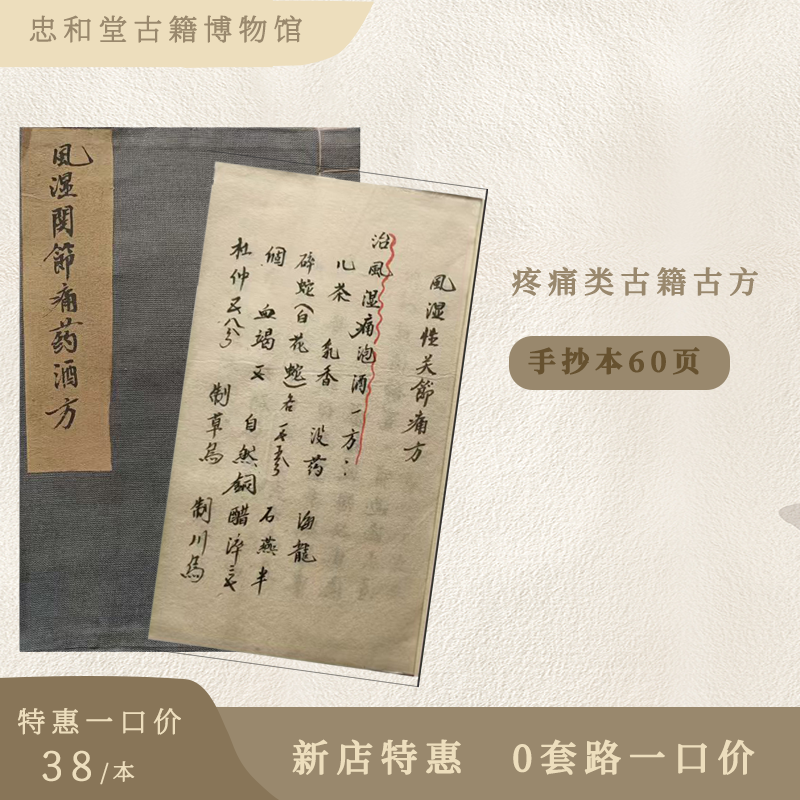 忠和堂古籍博物馆
風湿関節痛药酒方
風湿性关節痛方
治風湿痛泡酒一方：
儿茶 乳香 没药 海龍
碎蛇（白花蛇）各一支
個 血竭 自然銅醋淬 石燕半
杜仲五八分 制草烏 制川烏
疼痛类古籍古方
手抄本60页
特惠一口价
38/本
新店特惠 0套路一口价